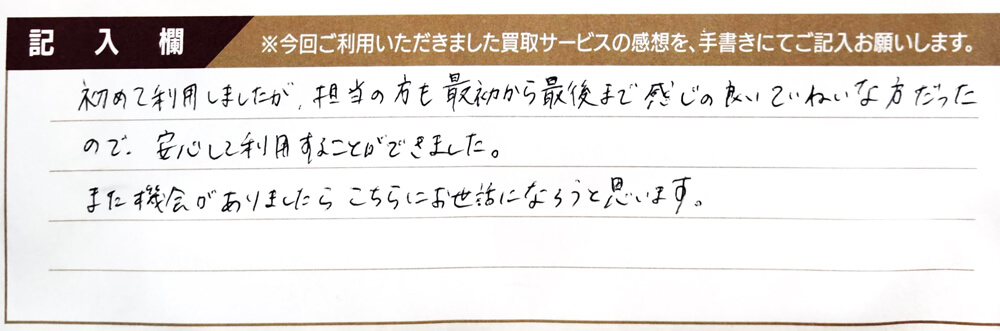 記入欄
※今回ご利用いただきました買取サービスの感想を、手書きにてご記入お願いします。
初めて利用しましたが、担当の方も最初から最後まで感じの良いていねいな方だった
ので、安心して利用することができました。
また機会がありましたらこちらにお世話になろうと思います。